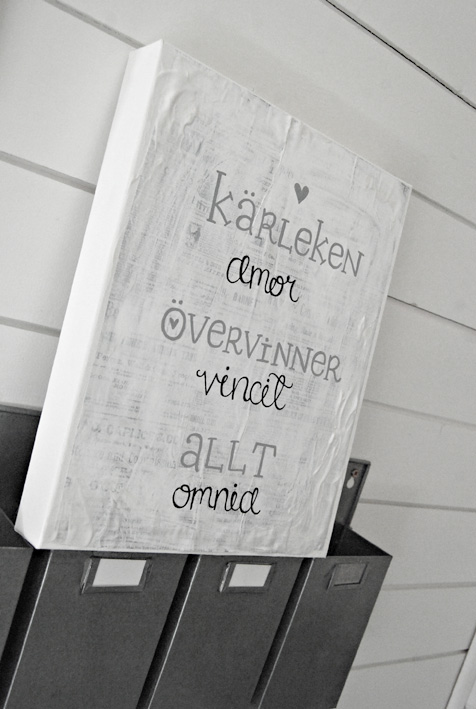 kärleken
amor
övervinner
vincit
allt
omnia